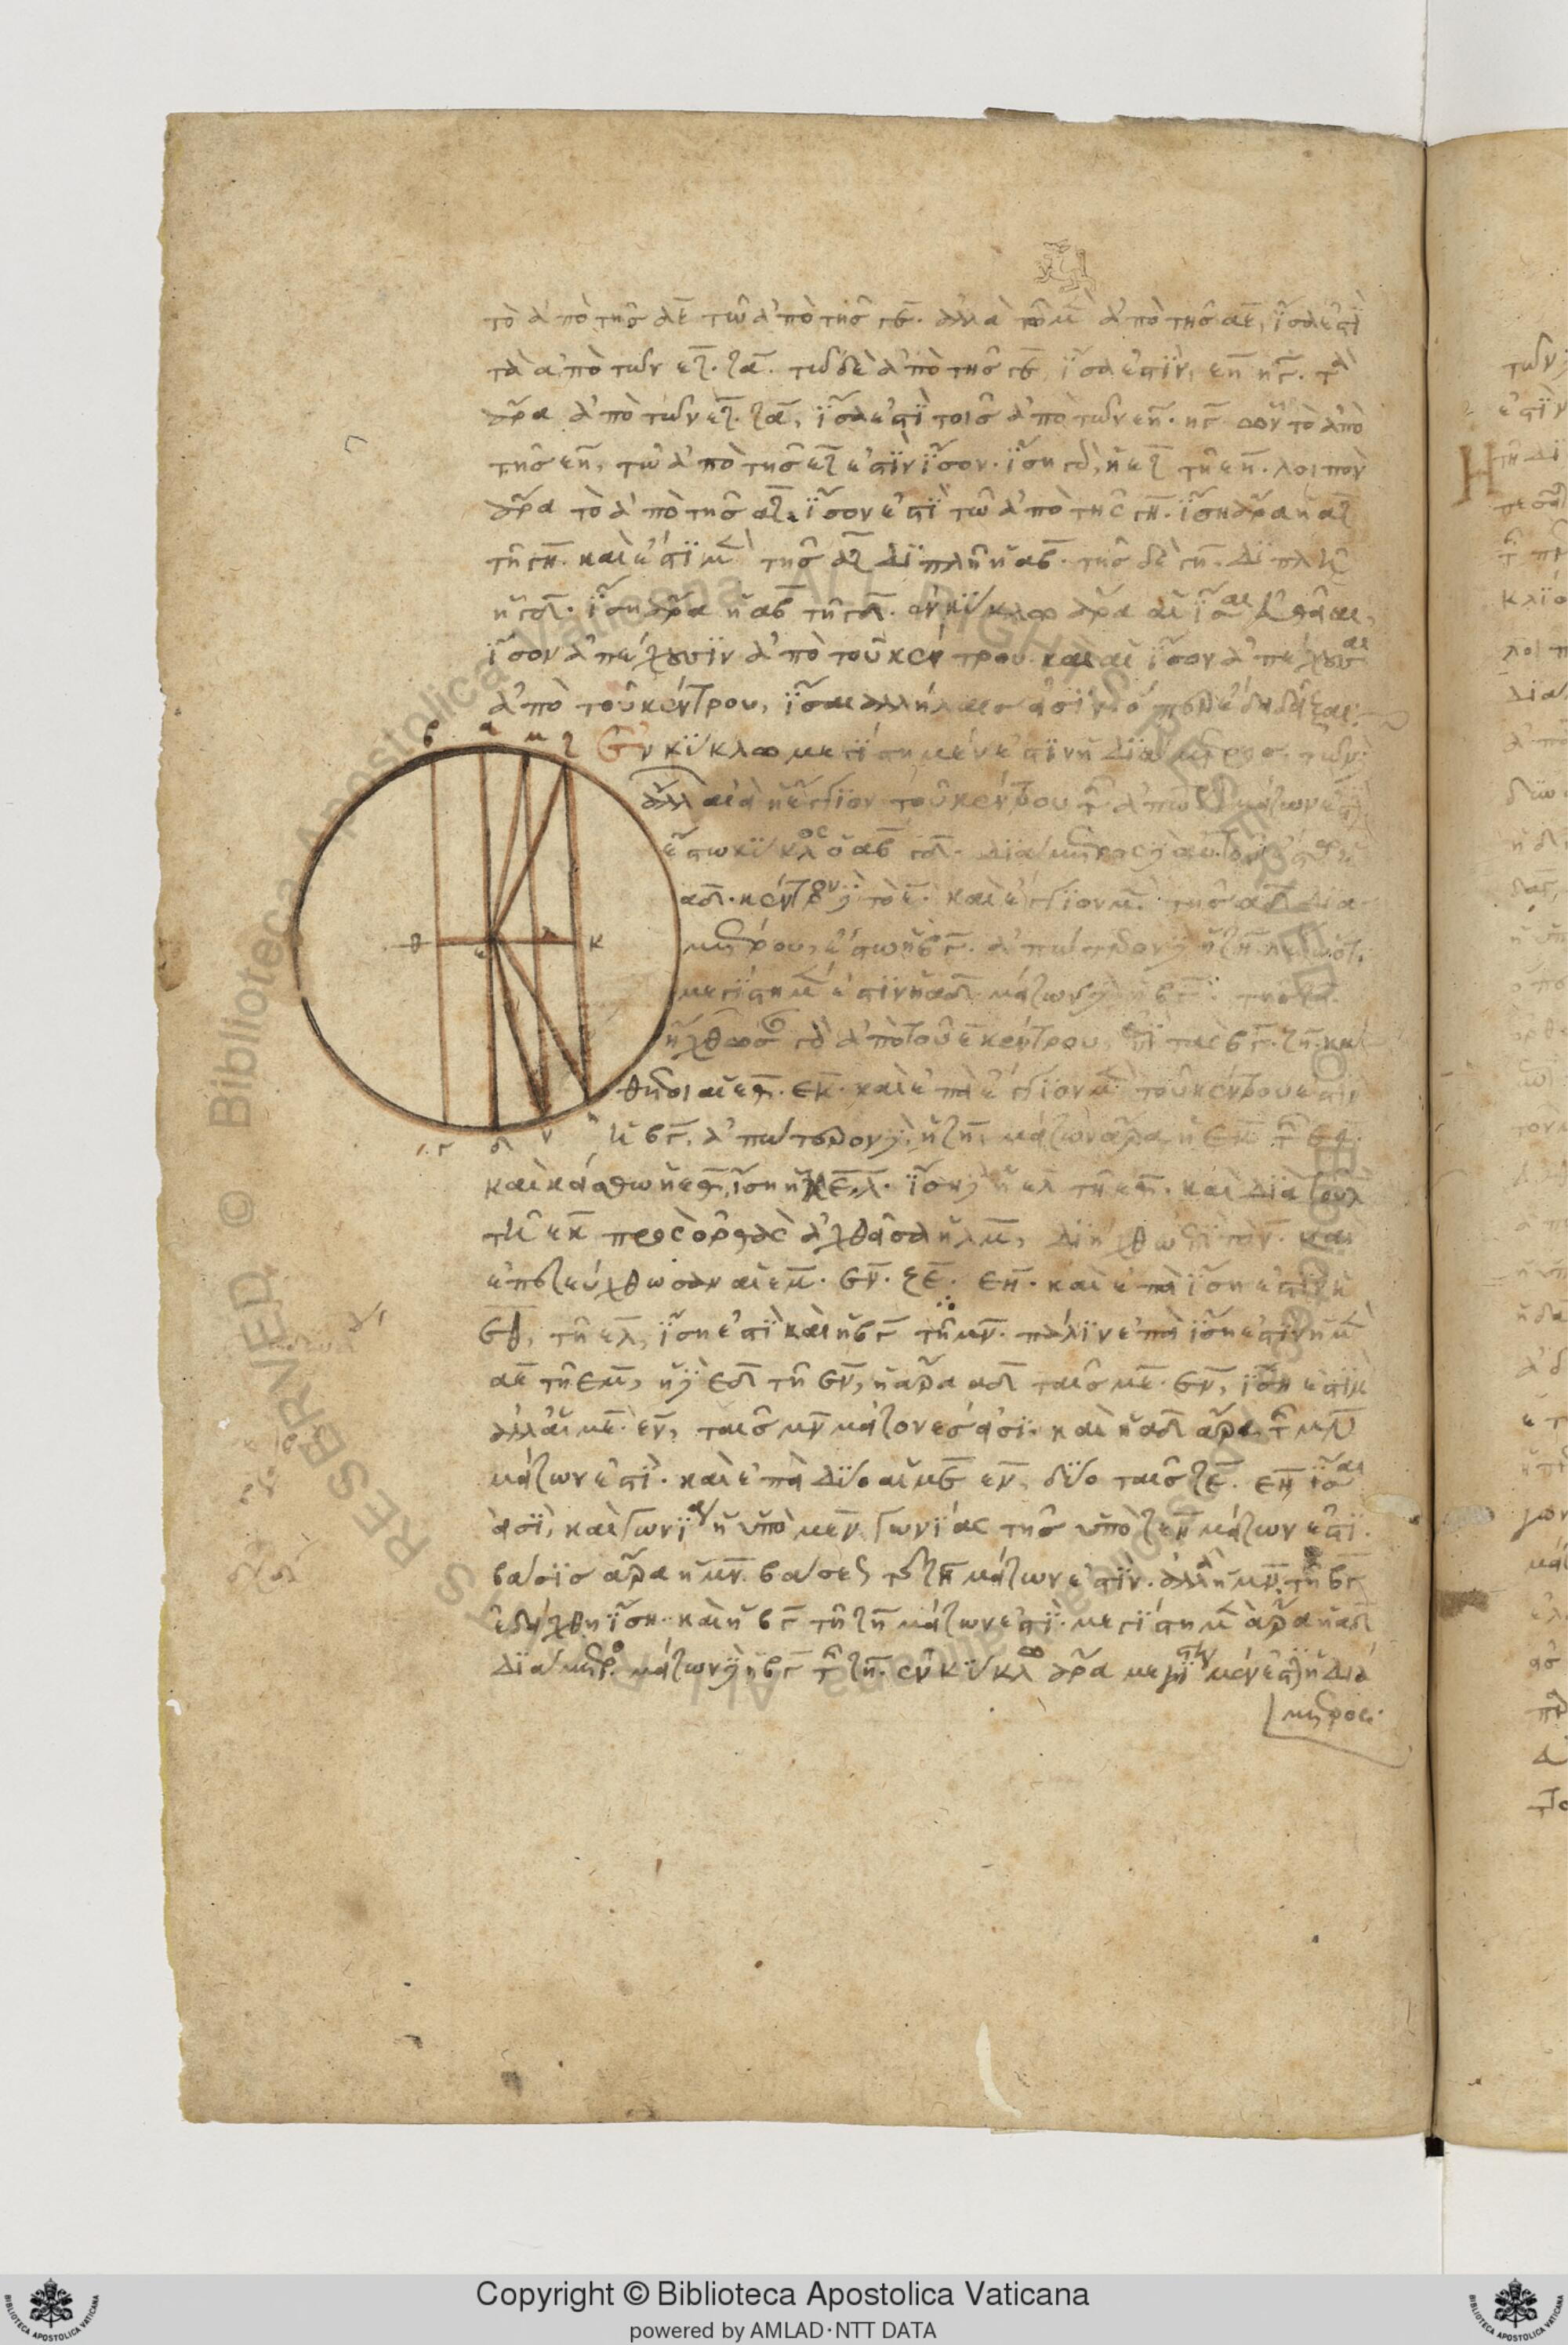 τὸ ἀπὸ τῆς αε τῶ ἀπὸ τῆς γε. ἀλλὰ τῶ μὲν ἀπὸ τῆς αε, ἴσα ἐστὶ
τὰ ἀπὸ τῶν εζ. ζα. τῶ δὲ ἀπὸ τῆς γε ἴσα ἐστὶν, εη ηγ. τὰ
ἄρα ἀπὸ τῶν εζ. ζα, ἴσα ἐστὶ τοῖς ἀπὸ τῶν εη. ηγ ὧν τὸ ἀπὸ
τῆς εη, τῶ ἀπὸ τῆς εζ ἐστὶν ἴσον. ἴση γὰρ, ἡ εζ τῆ εη. λοιπὸν
ἄρα τὸ ἀπὸ τῆς αζ. ἴσον ἐστὶ τῶ ἀπὸ τῆς γη. ἴση ἄρα ἡ αζ
τῆ γη. καὶ ἐστὶ μὲν τῆς αζ διπλῆ ἡ αβ. τῆς δὲ γη. διπλῆ
ἡ γδ. ἴση ἄρα ἡ αβ τῆ γδ. ἐν κύκλω ἄρα αἱ ἴσαι εὐθεῖαι,
ἴσον ἀπέχουσιν ἀπὸ τοῦ κέντρου. καὶ αἱ ἴσον ἀπέχουσαι
ἀπὸ τοῦ κέντρου, ἴσαι ἀλλήλαις εἰσίν. ὅπερ ἔδει δεῖξαι:
β α μ ζ
Ἐν κύκλω μεγίστη μέν ἐστιν ἡ διάμετρος. τῶν
ἄλλ ἀεὶ ἡ ἔγγιον τοῦ κέντρου τῆς ἀπώ μείζων ἐστὶ
ἔστω κύκλος ὁ αβ γδ. διάμετρος
αδ. κέντρον τὸ ε. καὶ ἔγγιον μὲν τῆς αδ δια
θ ε λ κ
μέτρου, ἔστω ἡ βγ. ἀπώτερον ἡ ζη. λέγω ὅτι
μεγίστη μέν ἐστιν ἡ αδ μείζων ἡ βγ. τῆς ζη.
ἤχθωσαν γὰρ ἀπὸ τοῦ ε κέντρου, ἐπὶ τὰς βγ. ζη. κά
θετοι αἱ εθ. εκ. καὶ ἐπεὶ ἔγγιον μὲν τοῦ κέντρου ἐστὶν
γ δ ν η
ἡ βγ. ἀπώτερον, ἡ ζη, μείζων ἄρα ἡ εκ τῆς εθ.
καὶ κείσθω ἡ εθ, ἴση ἡ ελ. ἴση ἡ ελ τῆ εθ. καὶ διὰ τοῦ λ
τῆ εκ πρὸς ὀρθὰς ἀχθεῖσα ἡ λμ, διήχθω ἐπὶ τὸ ν. καὶ
ἐπεζεύχθωσαν αἱ εμ. εν. ζε. εη. καὶ ἐπεὶ ἴση ἐστὶν ἡ
εθ, τῆ ελ, ἴση ἐστὶ καὶ ἡ βγ τῆ μν. πάλιν ἐπεὶ ἴση ἐστὶν ἡ μὲν
αε τῆ εμ, ἡ εδ τῆ εν, ἡ ἄρα αδ ταῖς με. εν, ἴση ἐστὶν
ἀλλ αἱ με. εν, ταῖς μν μείζονες εἰσί. καὶ ἡ αδ ἄρα τῆς μν
μείζων ἐστὶ. καὶ ἐπεὶ δύο αἱ με εν, δύο ταῖς ζε. εη ἴσαι
εἰσί, καὶ γωνία ἡ ὑπὸ μεν γωνίας τῆς ὑπὸ ζεη μείζων ἐστὶ.
βάσις ἄρα ἡ μν. βάσεως τῆς ζη μείζων ἐστίν. ἀλλὰ ἡ μν. τῆ βγ
ἐδείχθη ἴση. καὶ ἡ βγ τῆ ζη μείζων ἐστὶ. μεγίστη μὲν ἄρα ἡ αδ
διάμετρος. μείζων ἡ βγ τῆς ζη. ἐν κύκλω ἄρα μεγίστη μέν ἐστιν ἡ διά
μετρος.
Copyright © Biblioteca Apostolica Vaticana
powered by AMLAD·NTT DATA